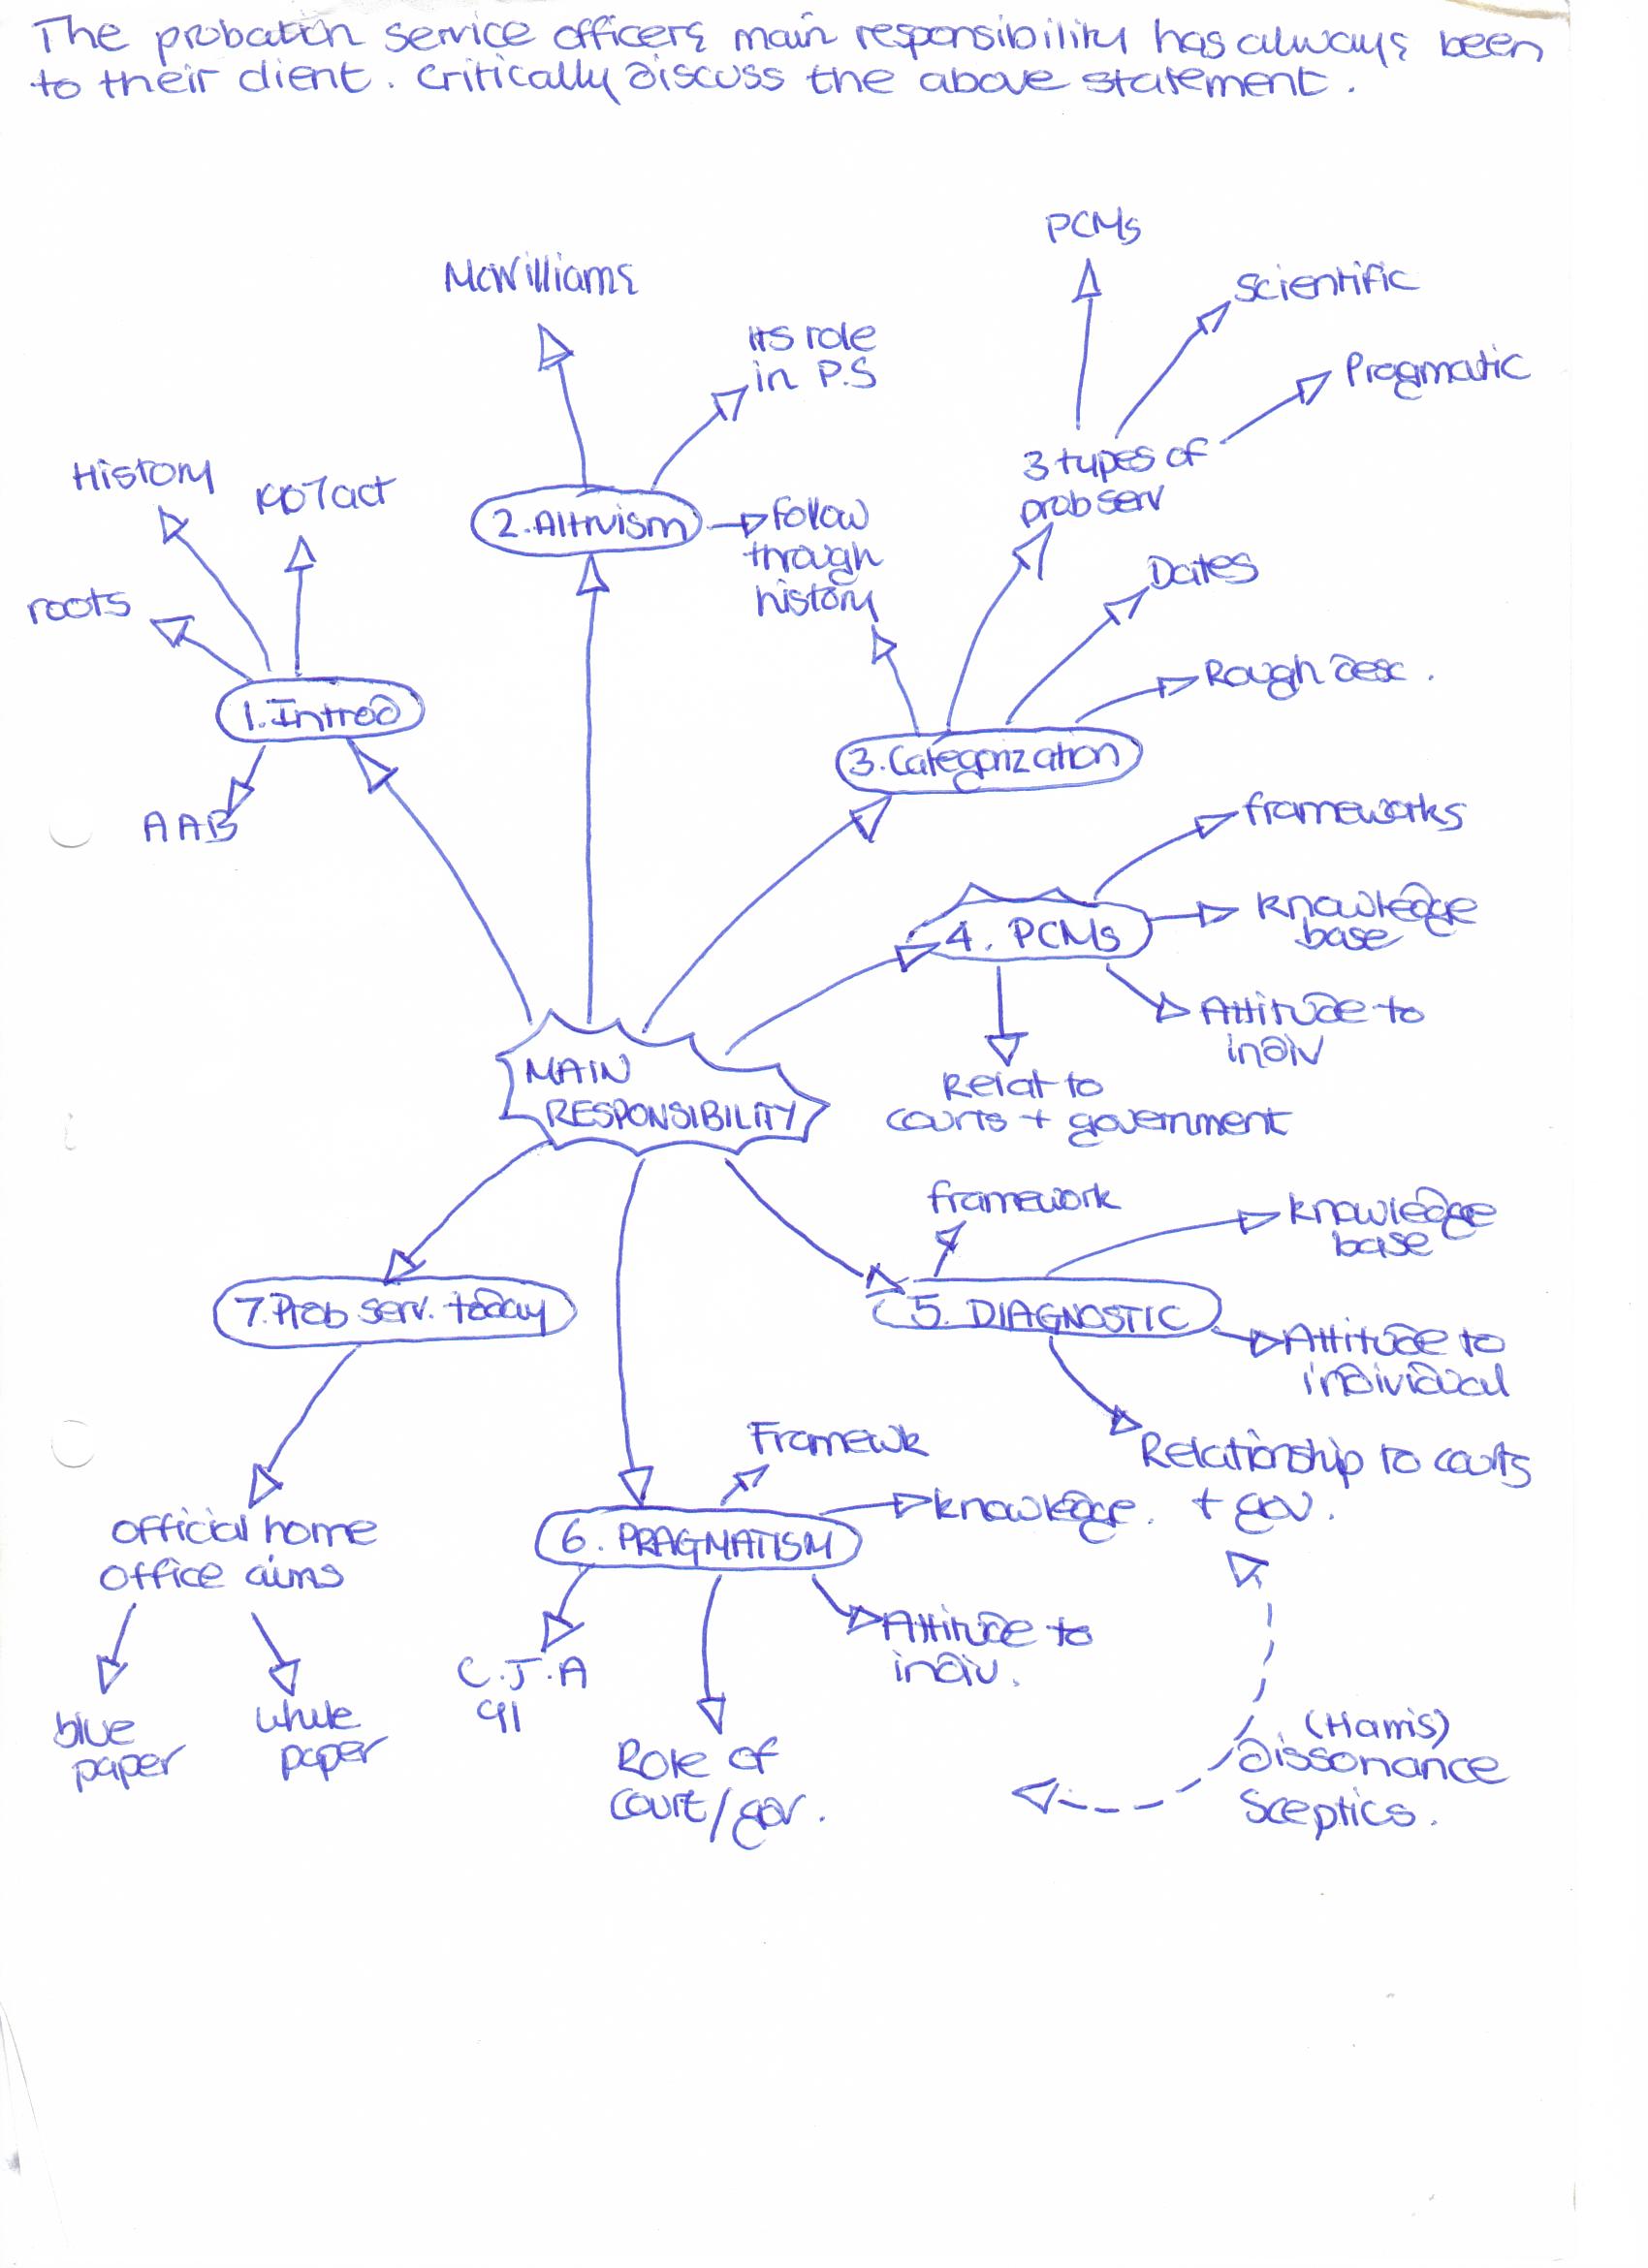 The probation service officers main responsibility has always been
to their client. Critically discuss the above statement.
PCMs
McWilliams
Scientific
its role
in P.S
Pragmatic
History
1907 act
3 types of
prob serv
2. Altruism
follow
through
history
Dates
roots
Rough desc.
1. Introd
3. Categorization
AAB
frameworks
4. PCMs
knowledge
base
Attitude to
indiv
Relat to
courts + government
MAIN
RESPONSIBILITY
framework
knowledge
base
7. Prob serv. today
5. DIAGNOSTIC
Attitude to
individual
Framewk
Relationship to courts
+ gov.
knowledge.
official home
office aims
6. PRAGMATISM
Attitude to
indiv.
C.J.A
91
blue
paper
white
paper
Role of
court/gov.
(Harris)
dissonance
sceptics.